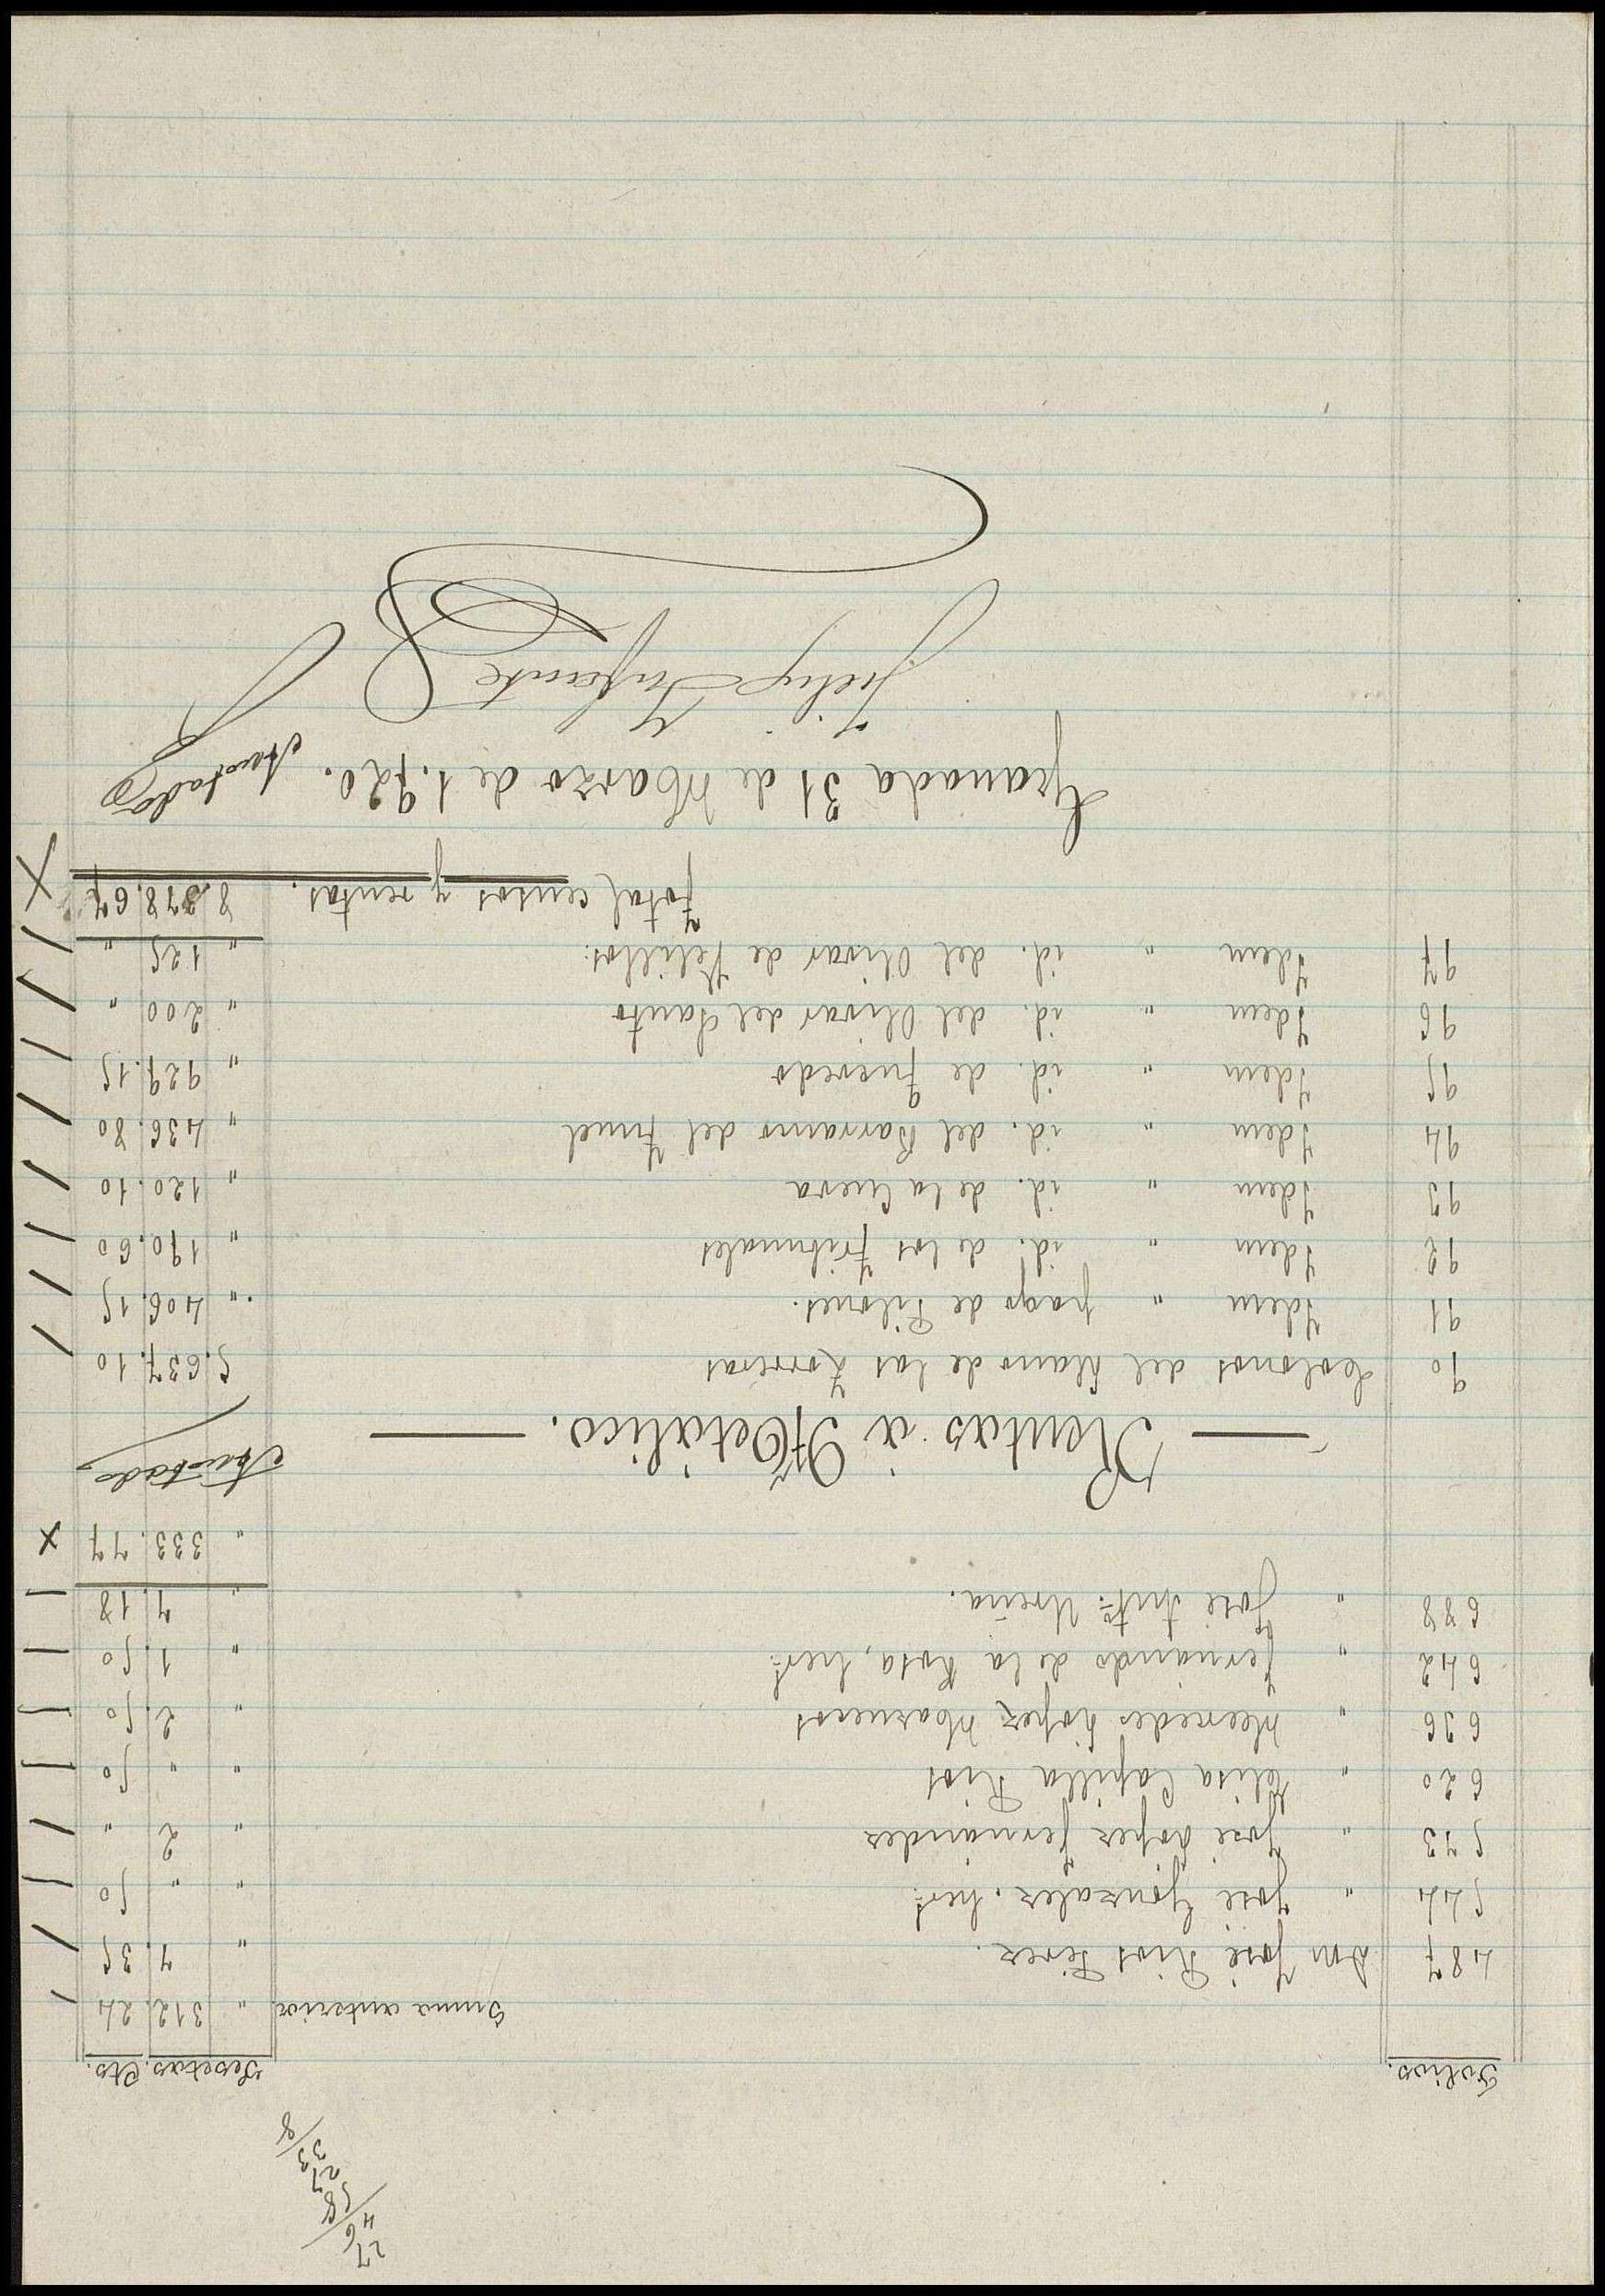 Folios. Pesetas. Cts.
Suma anterior " 312.24
487 Don José Rios Perez. " 7.35
544 " José Gonzalez, hers. " " 50
573 " José López Fernández " 2 "
620 " Elisa Capilla Rios " " 50
636 " Mercedes López " 2.50
642 " Fernando de la Rosa, hers. " 1.50
688 " José Antº Ureña. " 7.18
" 333.77
Anotado
Rentas á Metálico.
90 Colonos del Llano de las Zorreras 5.637.10
91 Idem " pago de Pilones. " 406.15
92 Idem " id. de los Tribunales " 190.60
93 Idem " id. de la Cueva " 120.10
94 Idem " id. del Barranco del Tunel " 436.80
95 Idem " id. de Quevedo " 929.15
96 Idem " id. del Olivar del Santo " 200 "
97 Idem " id. del Olivar de Velillos: " 125 "
Total censos y rentas. 8.378.67
Granada 31 de Marzo de 1.920.
Anotado
Felipe Infante